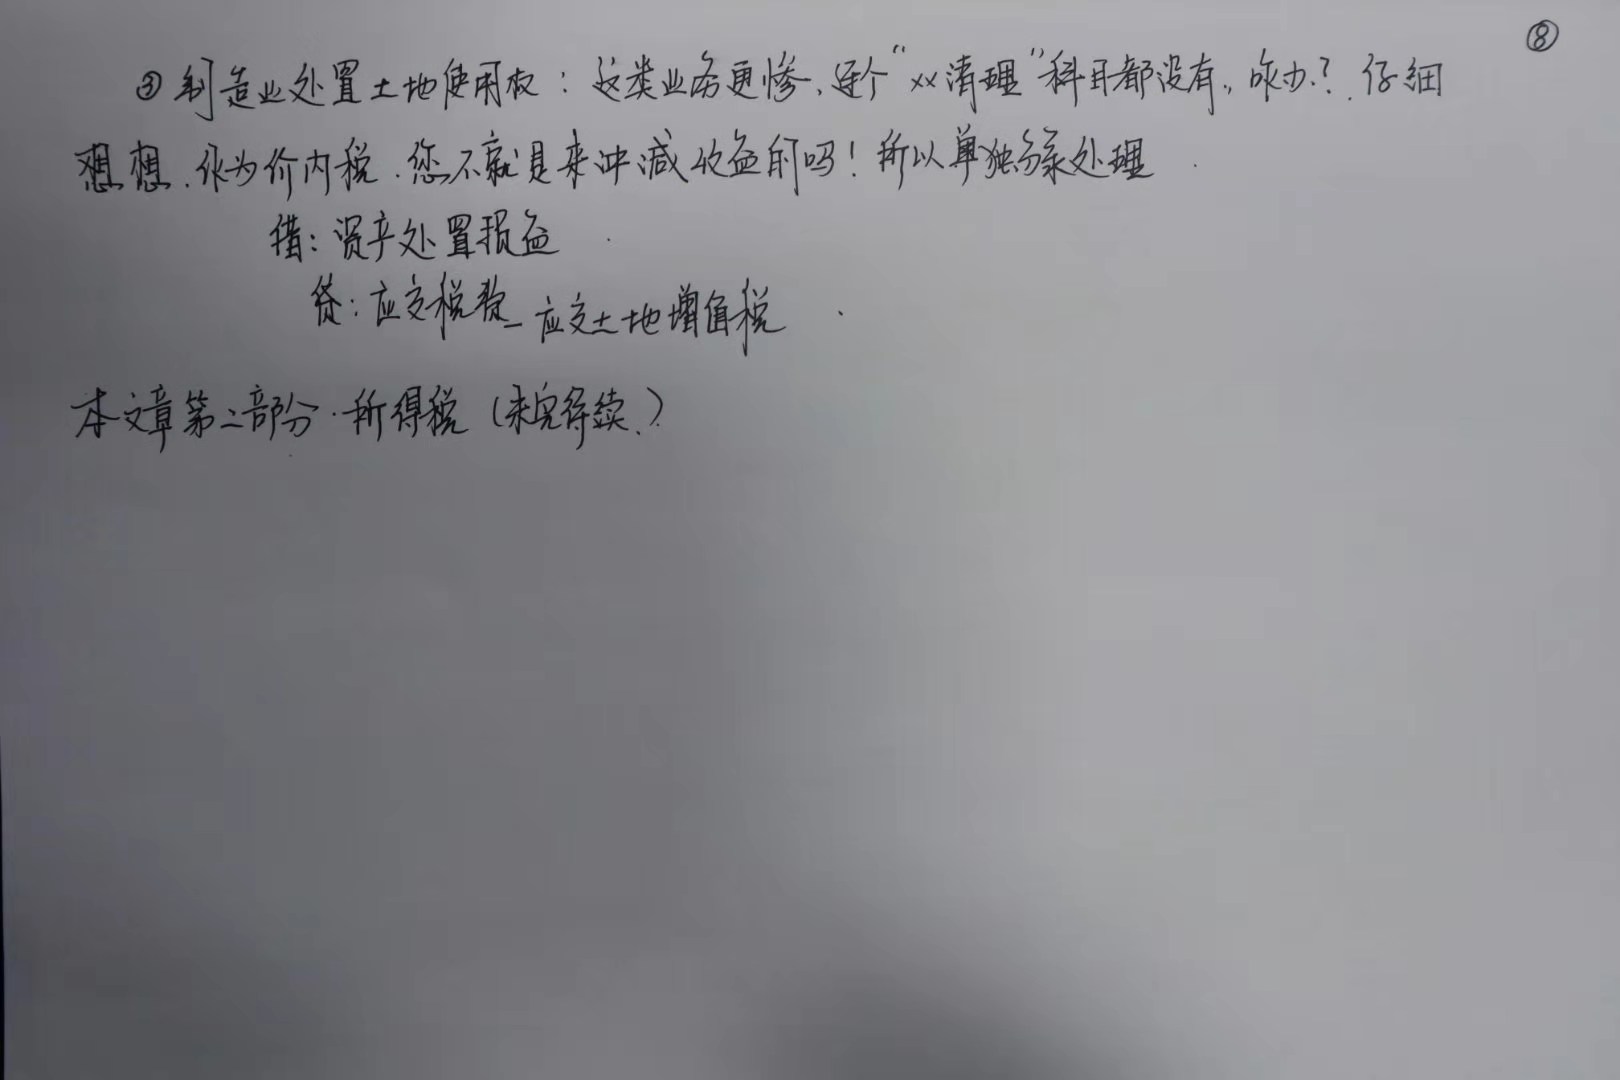 ⑧
③ 制造业处置土地使用权：这类业务更惨，连个“××清理”科目都没有，咋办？仔细
想想，作为价内税，您不就是来冲减收益的吗！所以单独分录处理
借：资产处置损益
贷：应交税费—应交土地增值税
本文章第二部分·所得税（未完待续）